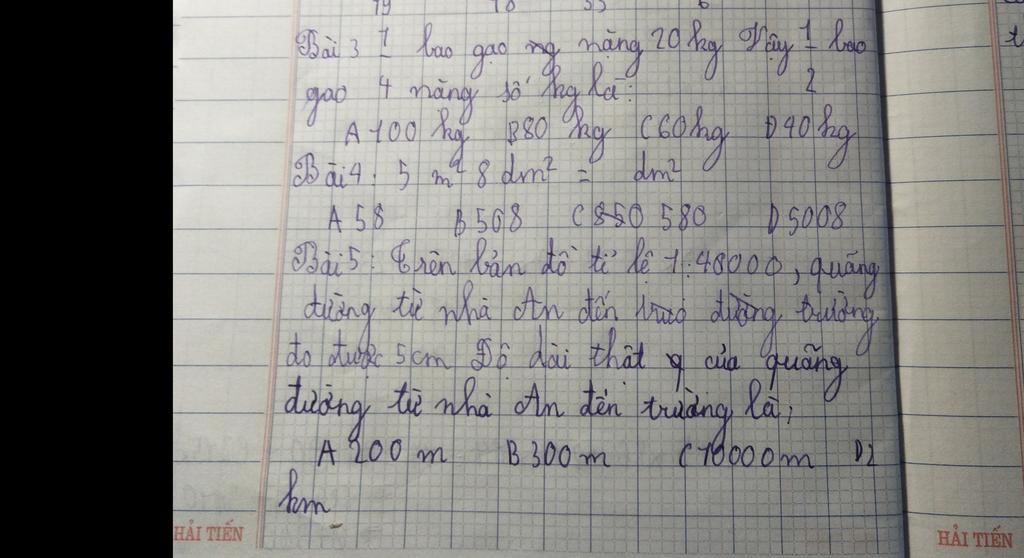 19 18 55 6
Bài 3 1/4 bao gạo ng nặng 20 kg Vậy 1/2 bao
gạo nặng số kg là:
A 100 kg B 80 kg C 60 kg D 40 kg
Bài 4: 5 m² 8 dm² = dm²
A 58 B 508 C 850 580 D 5008
Bài 5: Trên bản đồ tỉ lệ 1:40000, quãng
đường từ nhà An đến đường trường
đo được 5cm Độ dài thật q của quãng
đường từ nhà An đến trường là:
A 200 m B 300 m C 10000 m D 2
km
HẢI TIẾN HẢI TIẾN